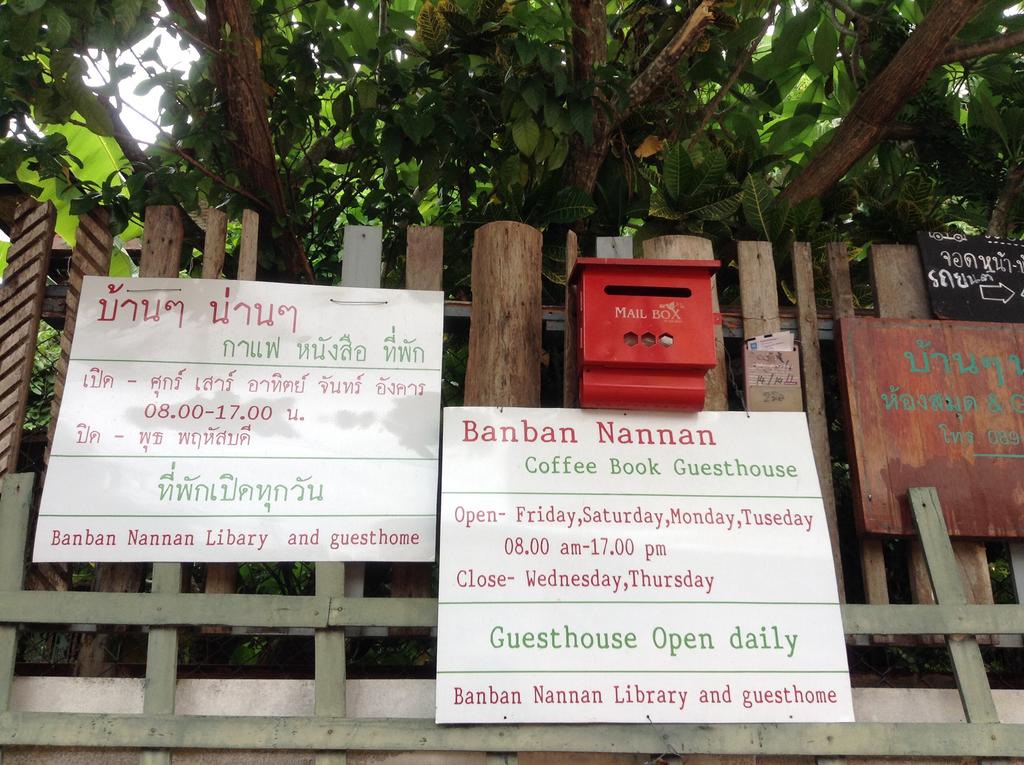 บ้านๆ น่านๆ
กาแฟ หนังสือ ที่พัก
เปิด - ศุกร์ เสาร์ อาทิตย์ จันทร์ อังคาร
08.00-17.00 น.
ปิด - พุธ พฤหัสบดี
ที่พักเปิดทุกวัน
Banban Nannan Libary and guesthome
MAIL BOX
Banban Nannan
Coffee Book Guesthouse
Open- Friday,Saturday,Monday,Tuseday
08.00 am-17.00 pm
Close- Wednesday,Thursday
Guesthouse Open daily
Banban Nannan Library and guesthome
จอดหน้า
รถยนต์
บ้านๆ
ห้องสมุด &
โทร. 089